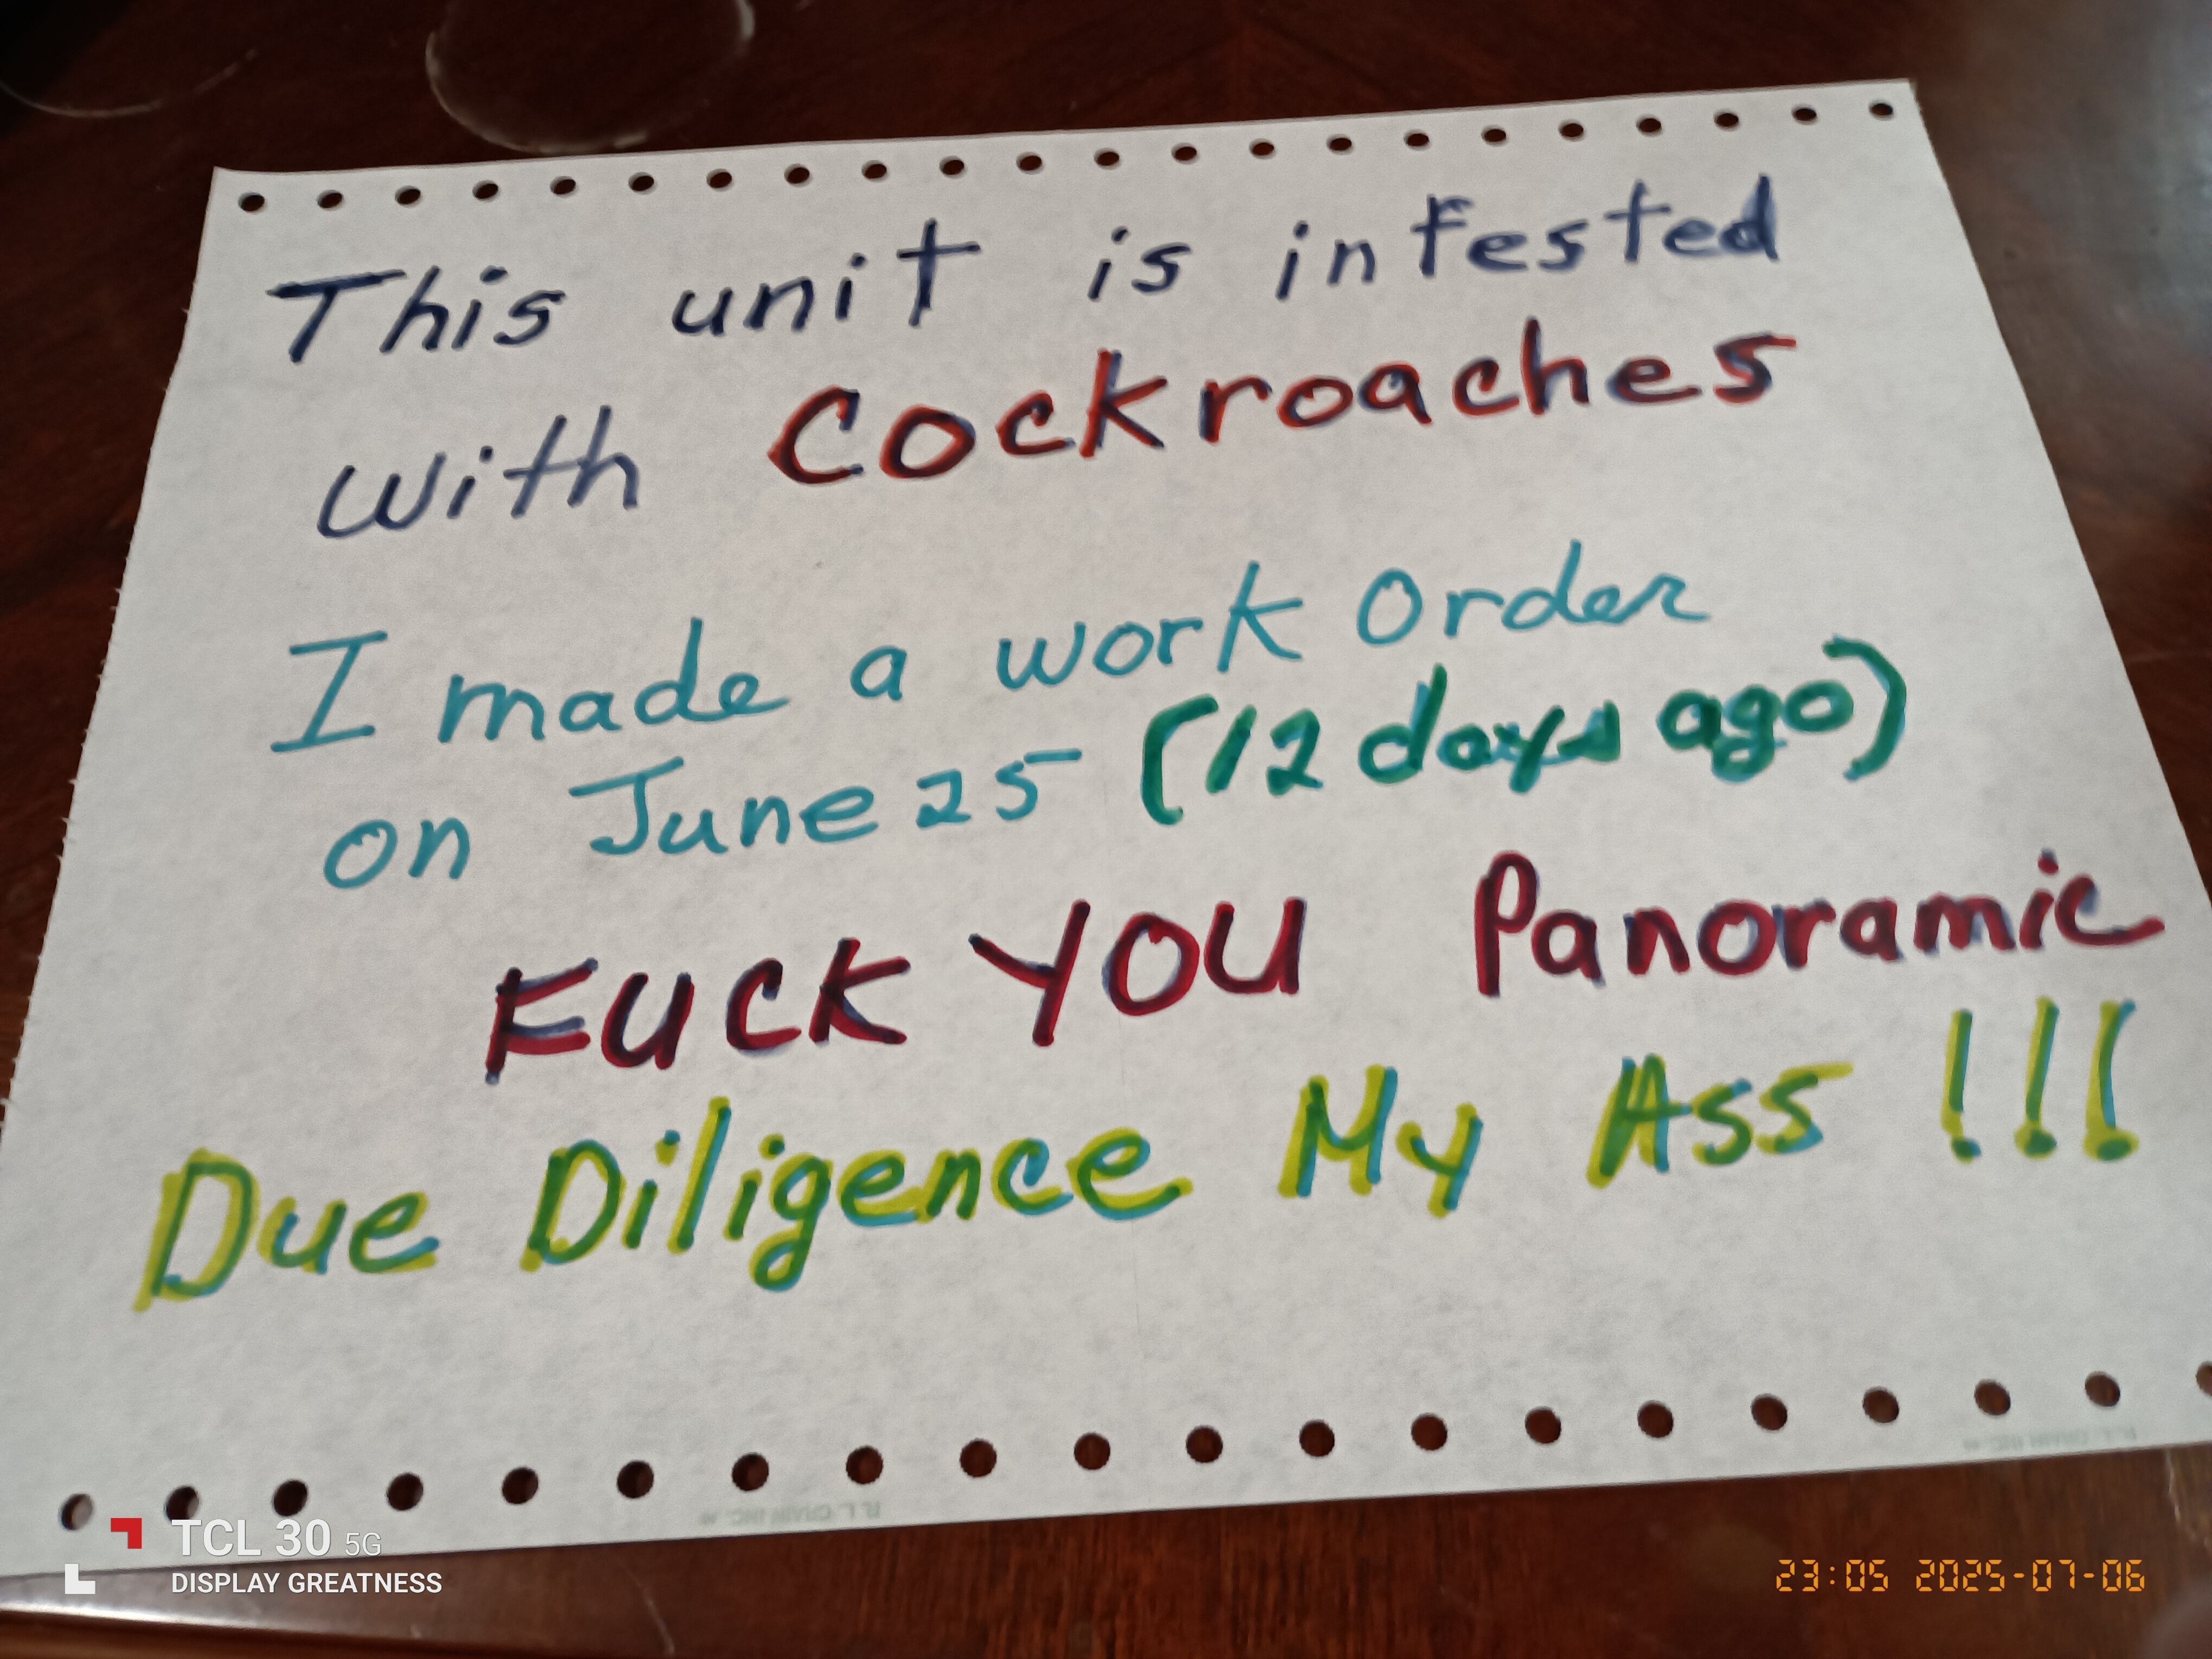 This unit is infested
with Cockroaches
I made a work Order
on June 25 (12 days ago)
FUCK YOU Panoramic
Due Diligence My Ass !!!
TCL 30 5G
DISPLAY GREATNESS
23:05 2025-07-06